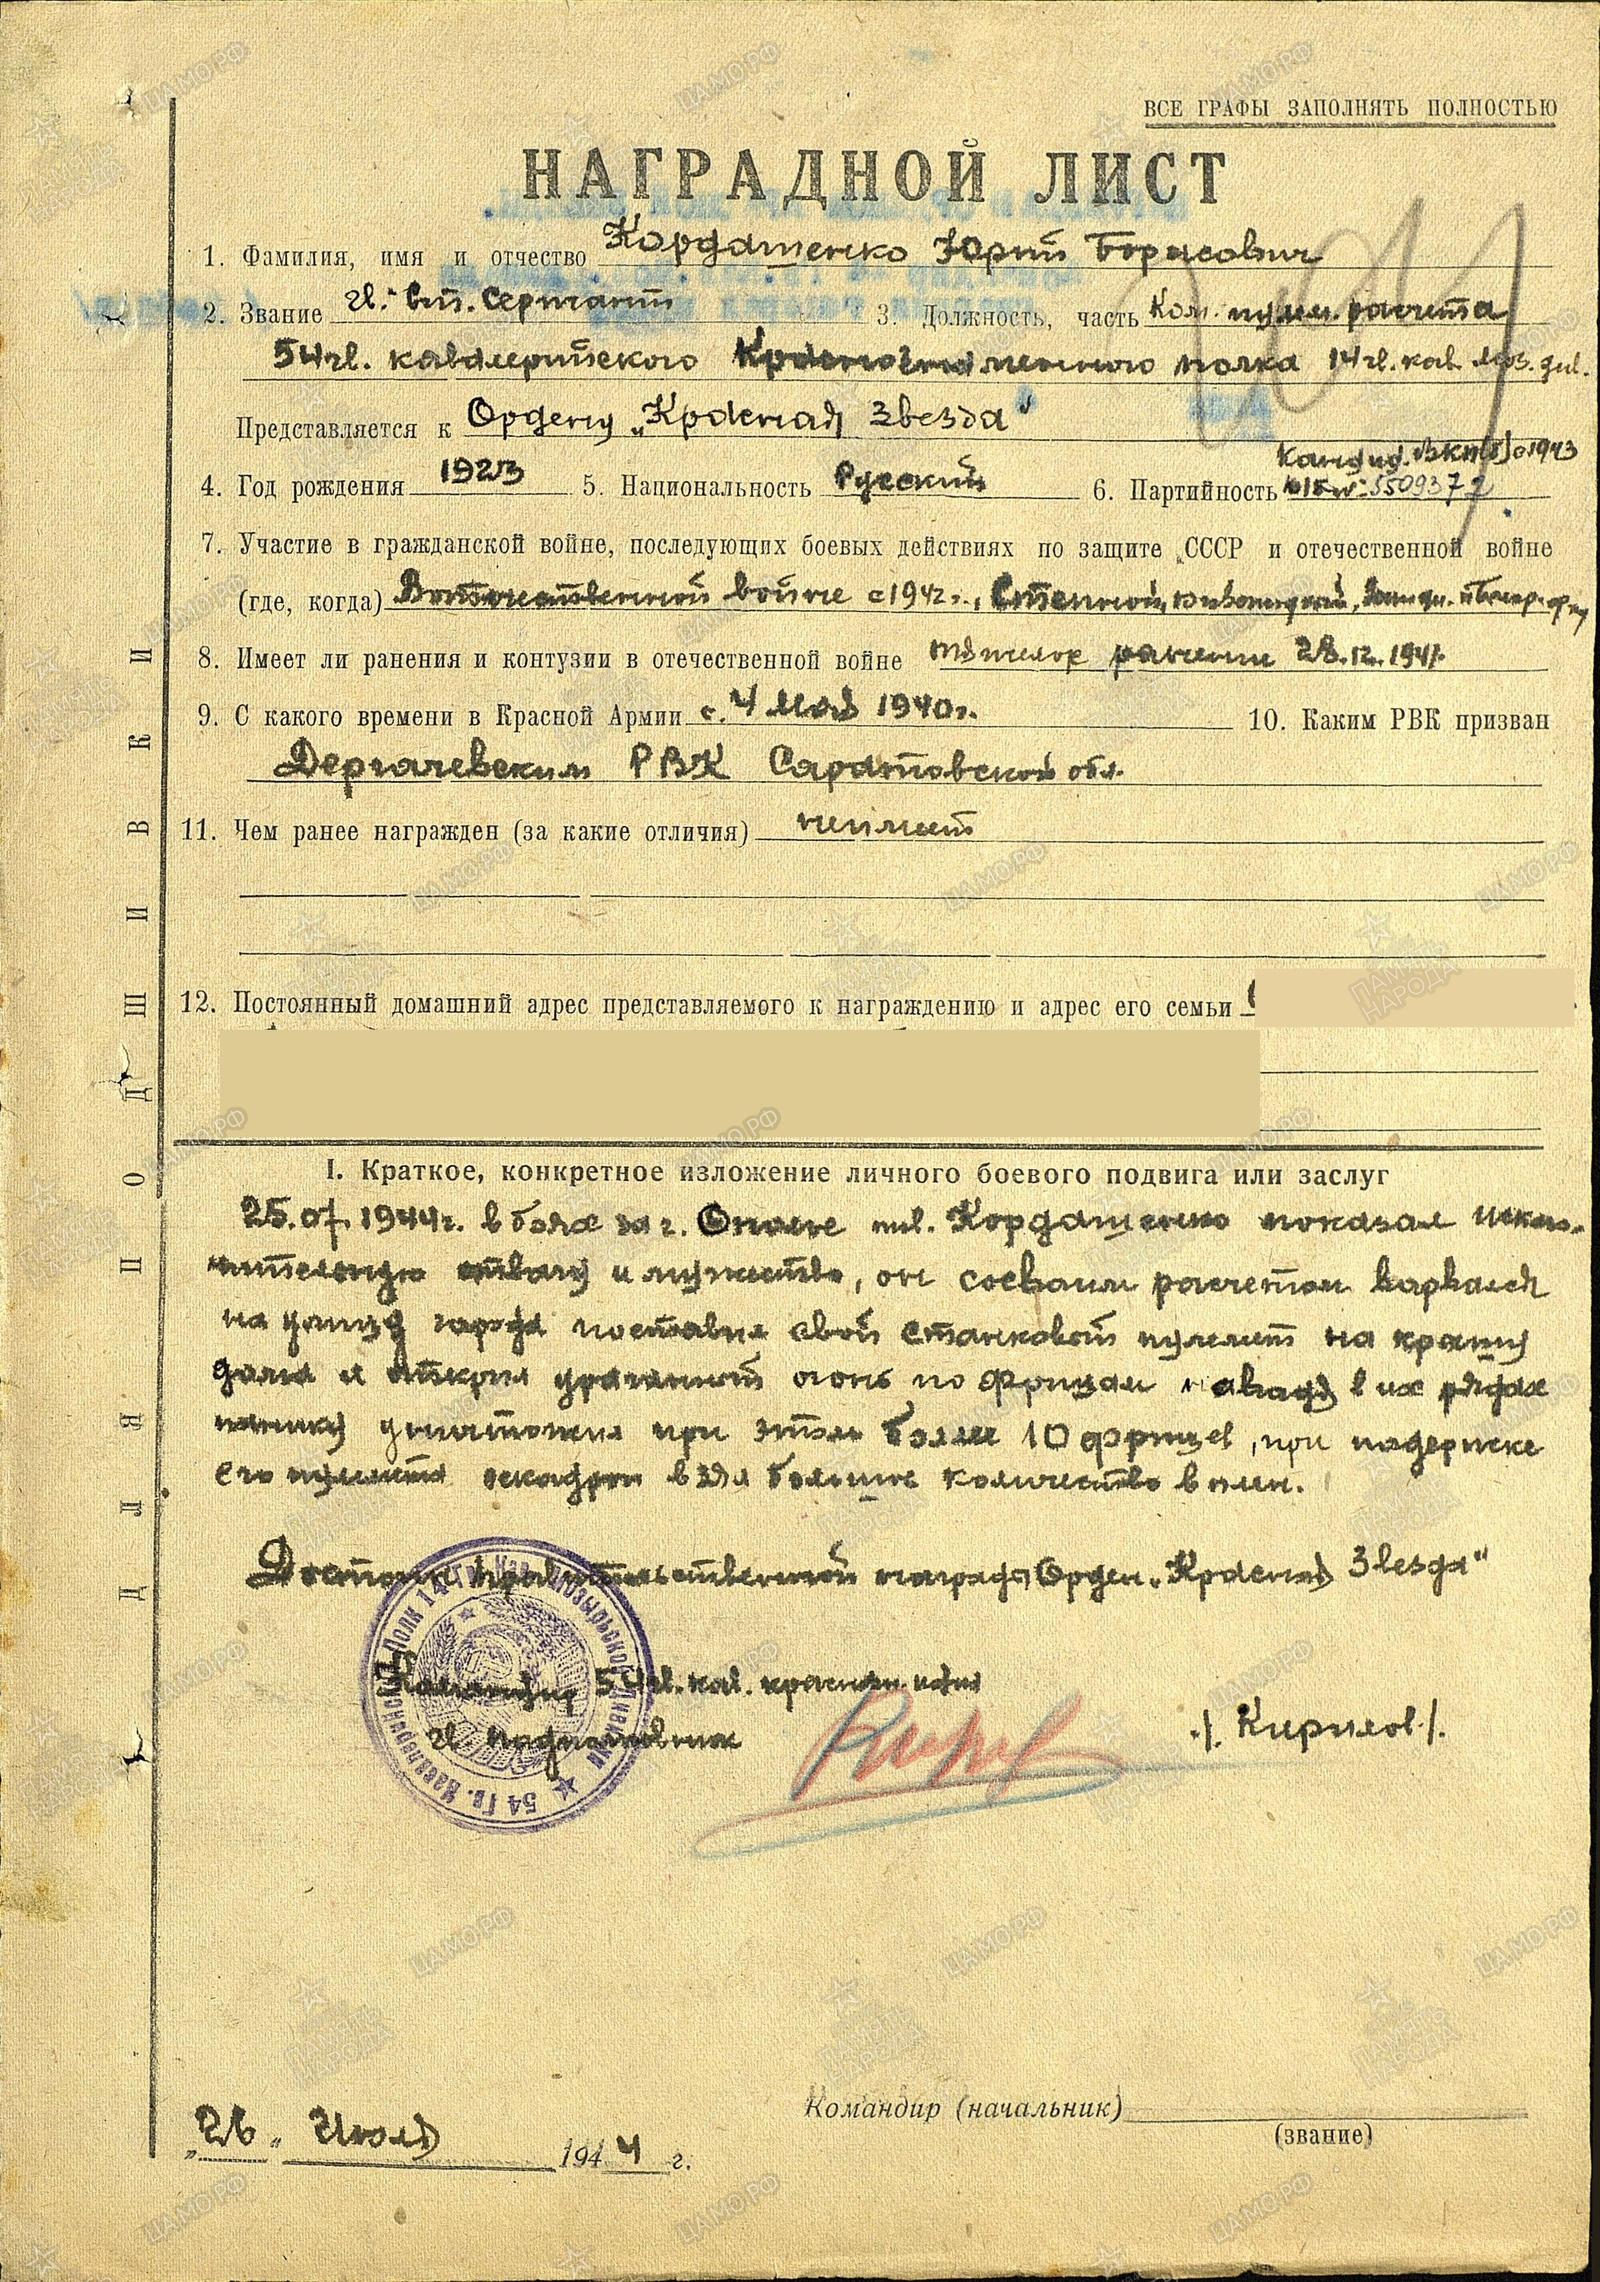 ВСЕ ГРАФЫ ЗАПОЛНЯТЬ ПОЛНОСТЬЮ
НАГРАДНОЙ ЛИСТ
1. Фамилия, имя и отчество Кордашенко Юрий Борисович
2. Звание гв. ст. Сержант 3. Должность, часть Ком. пулем. расчета
54 гв. кавалерийского Краснознаменного полка 14 гв. кав. моз. див.
Представляется к Ордену „Красная Звезда"
4. Год рождения 1923 5. Национальность Русский 6. Партийность Кандид. ВКП(б) с 1943
к/к № 5509372
7. Участие в гражданской войне, последующих боевых действиях по защите СССР и отечественной войне
(где, когда) В отечественной войне с 1942 г., Степной,
8. Имеет ли ранения и контузии в отечественной войне тяжелое ранение 28.12.194
9. С какого времени в Красной Армии с 4 мая 1940 г. 10. Каким РВК призван
Дергачевским РВК Саратовской обл.
11. Чем ранее награжден (за какие отличия) неимеет
12. Постоянный домашний адрес представляемого к награждению и адрес его семьи
I. Краткое, конкретное изложение личного боевого подвига или заслуг
25.07.1944 г. в боях за г. Кордашенко показал исклю-
чительную отвагу и мужество, он сосваим расчетом варвался
на улицу города поставил свой станковой пулемет на крышу
дома и открыл ураганной огонь по фрицам наводя в их рядах
панику уничтожил при этом более 10 фрицев, при падержке
его пулемета эскадрон взял больше количество в плен.
Достоин правительственной награды Орден „Красная Звезда"
Командир 54 гв. кав. краснозн. полка
гв подполковник /. Кирилов /.
54 Гв. Кавалерийский Полк 14 Гв. Кав. Мозырьской Дивизии
Командир (начальник)
(звание)
„26" Июля 1944 г.
ДЛЯ ПОДШИВКИ
ЦАМО РФ
ПАМЯТЬ НАРОДА